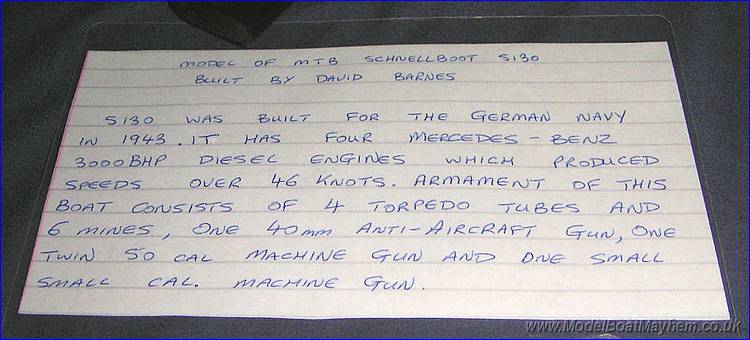 MODEL OF MTB SCHNELLBOOT S130
BUILT BY DAVID BARNES
S130 WAS BUILT FOR THE GERMAN NAVY
IN 1943. IT HAS FOUR MERCEDES - BENZ
3000BHP DIESEL ENGINES WHICH PRODUCED
SPEEDS OVER 46 KNOTS. ARMAMENT OF THIS
BOAT CONSISTS OF 4 TORPEDO TUBES AND
6 MINES, ONE 40mm ANTI-AIRCRAFT GUN, ONE
TWIN 50 CAL MACHINE GUN AND ONE SMALL
SMALL CAL. MACHINE GUN.
www.ModelBoatMayhem.co.uk